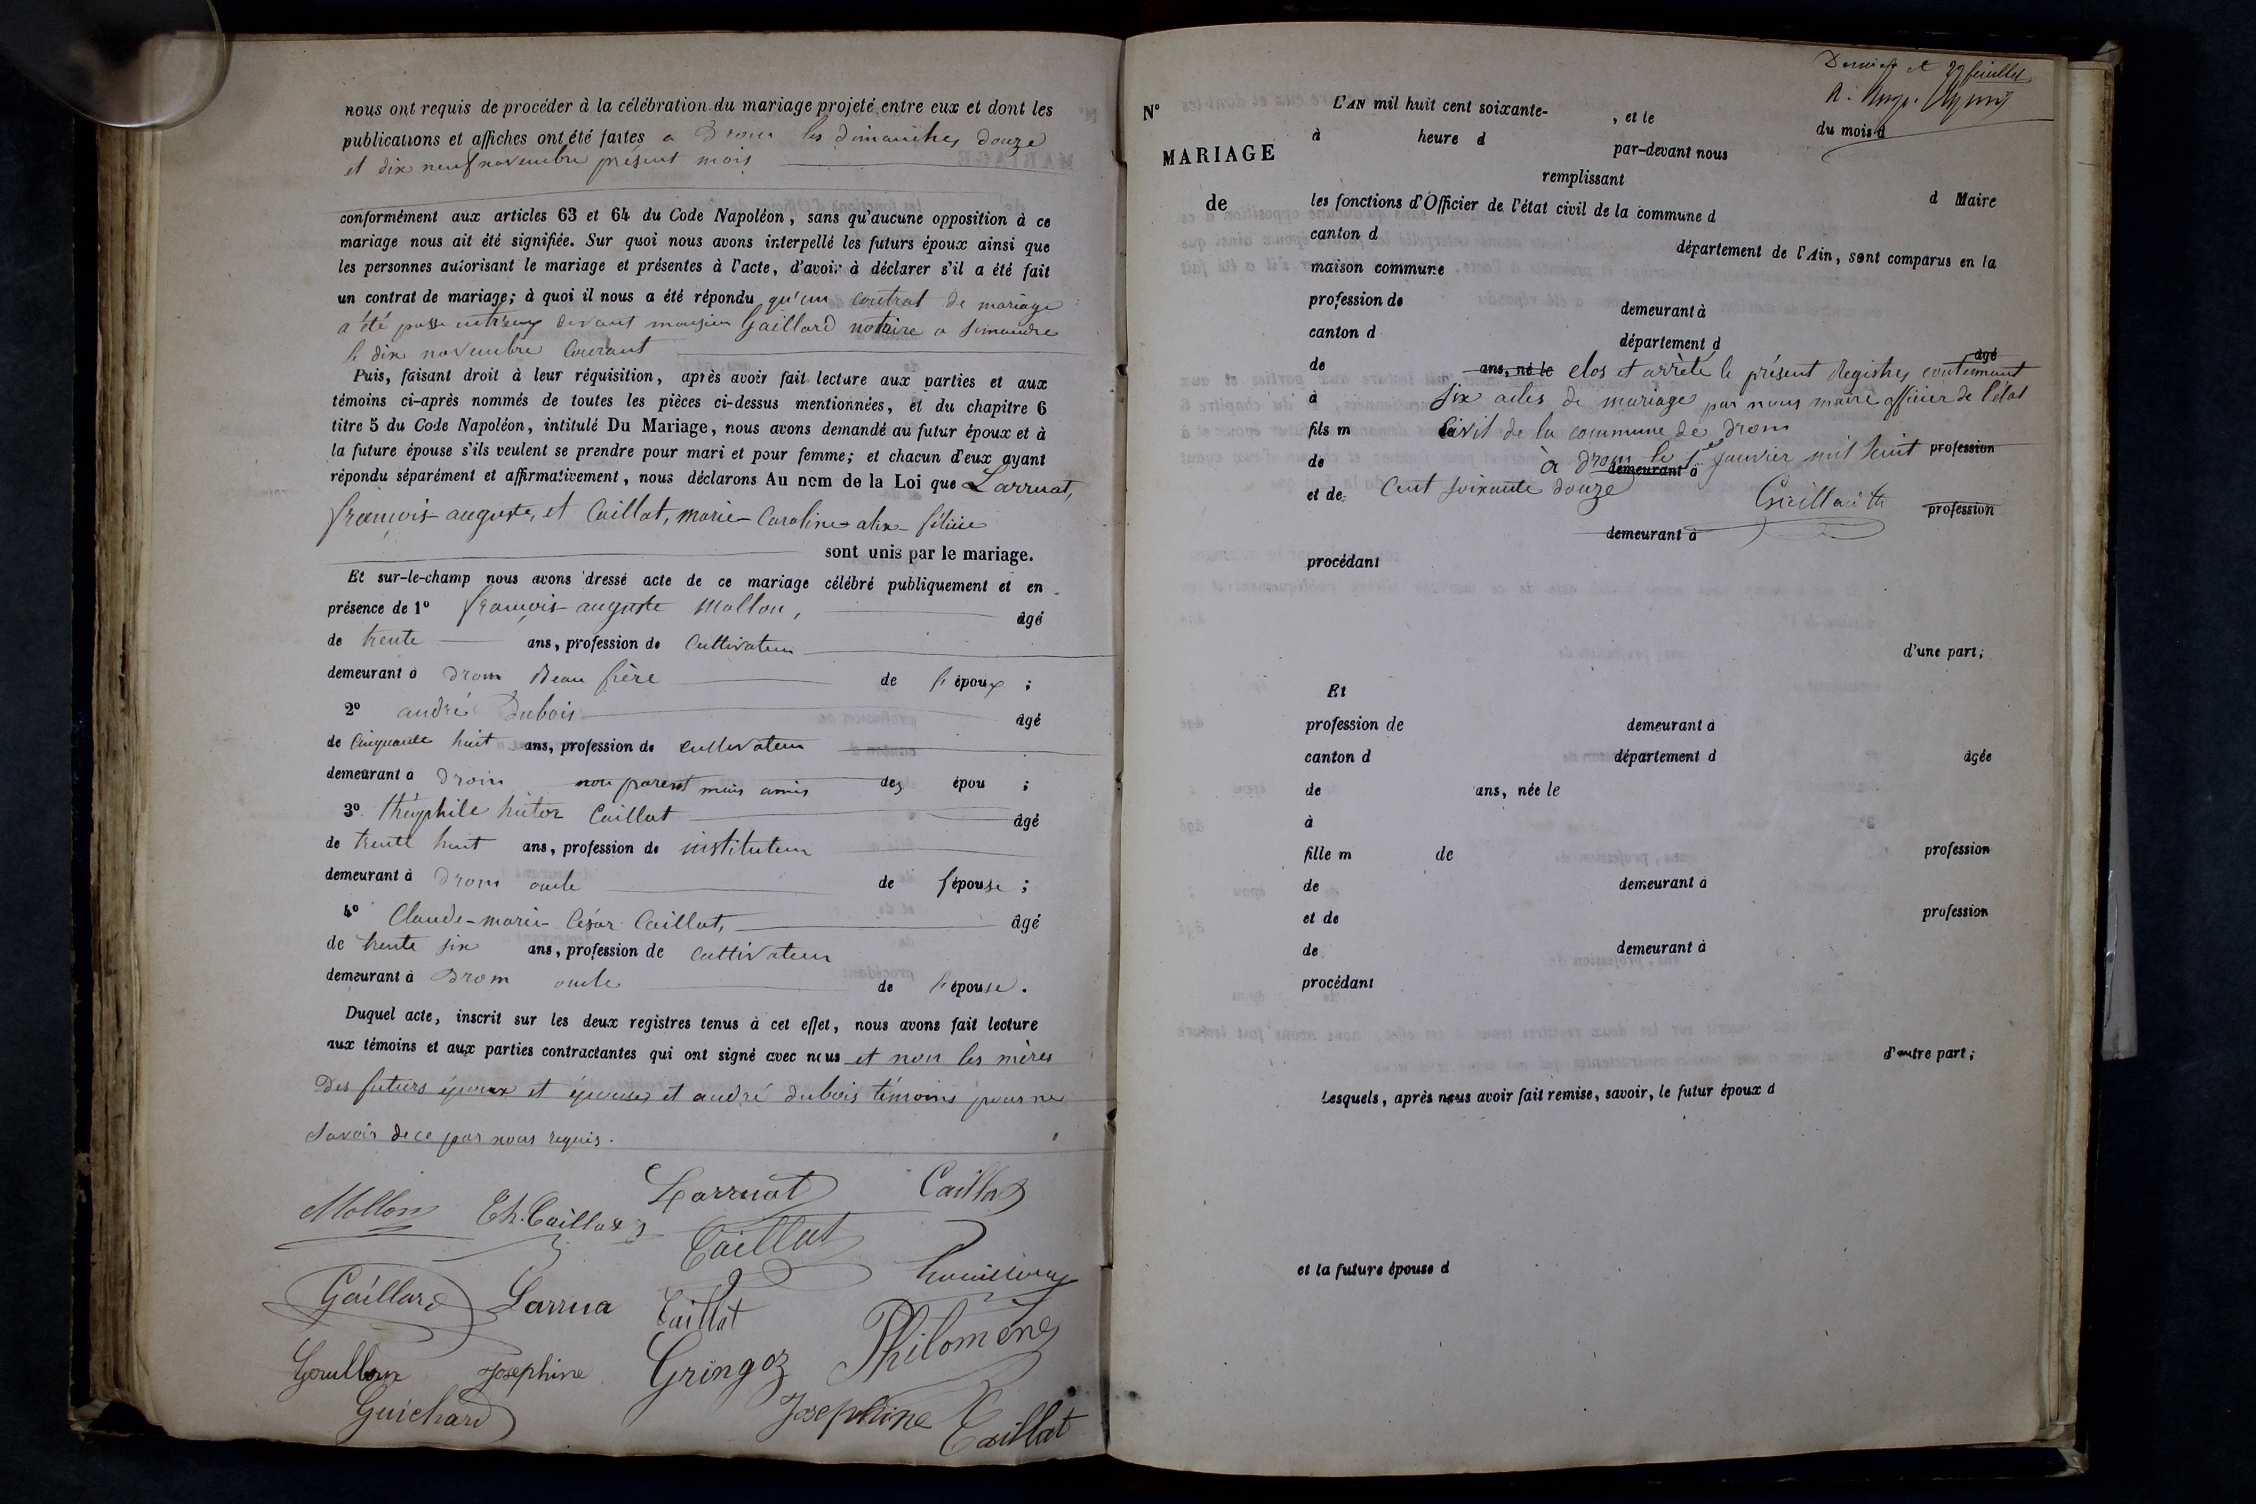 nous ont requis de procéder à la célébration du mariage projeté entre eux et dont les
publications et affiches ont été faites a Drom les dimanches douze
et dix neuf novembre présent mois
conformément aux articles 63 et 64 du Code Napoléon, sans qu'aucune opposition à ce
mariage nous ait été signifiée. Sur quoi nous avons interpellé les futurs époux ainsi que
les personnes autorisant le mariage et présentes à l'acte, d'avoir à déclarer s'il a été fait
un contrat de mariage; à quoi il nous a été répondu qu'un contrat de mariage
a été passé entreux devant monsieur Gaillard notaire a Simandre
le dix novembre courant
Puis, faisant droit à leur réquisition, après avoir fait lecture aux parties et aux
témoins ci-après nommés de toutes les pièces ci-dessus mentionnées, et du chapitre 6
titre 5 du Code Napoléon, intitulé Du Mariage, nous avons demandé au futur époux et à
la future épouse s'ils veulent se prendre pour mari et pour femme; et chacun d'eux ayant
répondu séparément et affirmativement, nous déclarons Au nom de la Loi que Larruat,
françois-auguste, et Caillat, marie-Caroline-alix-félicie
sont unis par le mariage.
Et sur-le-champ nous avons dressé acte de ce mariage célébré publiquement et en
présence de 1° françois-auguste Mollon, âgé
de trente ans, profession de Cultivateur
demeurant à Drom Beau frère de l'époux ;
2° andré Dubois âgé
de Cinquante huit ans, profession de cultivateur
demeurant à Drom non parent mais amis des épou ;
3° théophile hictor Caillat âgé
de trente huit ans, profession de instituteur
demeurant à Drom oncle de l'épouse ;
4° Claude-marie-César Caillat, âgé
de trente six ans, profession de cultivateur
demeurant à Drom oncle de l'épouse.
Duquel acte, inscrit sur les deux registres tenus à cet effet, nous avons fait lecture
aux témoins et aux parties contractantes qui ont signé avec nous et non les mères
Des futurs époux et épouse et andré dubois témoins pour ne
savoir de ce par nous requis.
Larruat Caillat
Mollon Th. Caillat
Caillat
Gaillard Larrua Caillat
Philomène
Josephine Gringoz
Guichard Josephine Caillat
Dernier et 29 feuillet
N°
MARIAGE
de
L'AN mil huit cent soixante- , et le du mois d
à heure d par-devant nous
remplissant
les fonctions d'Officier de l'état civil de la commune d d Maire
canton d département de l'Ain, sont comparus en la
maison commune
profession de demeurant à
canton d département d âgé
de ans, né le clos et arrêté le présent Registres contenant
à six actes de mariage par nous maire officier de l'état
fils m Civil de la commune de Drom
de à Drom le 1er Janvier mil huit profession
demeurant à
et de Cent soixante douze profession
demeurant à
procédant
d'une part;
Et
profession de demeurant à
canton d département d âgée
de ans, née le
à
fille m de profession
de demeurant à
et de profession
de demeurant à
procédant
d'autre part;
Lesquels, après nous avoir fait remise, savoir, le futur époux d
et la future épouse d